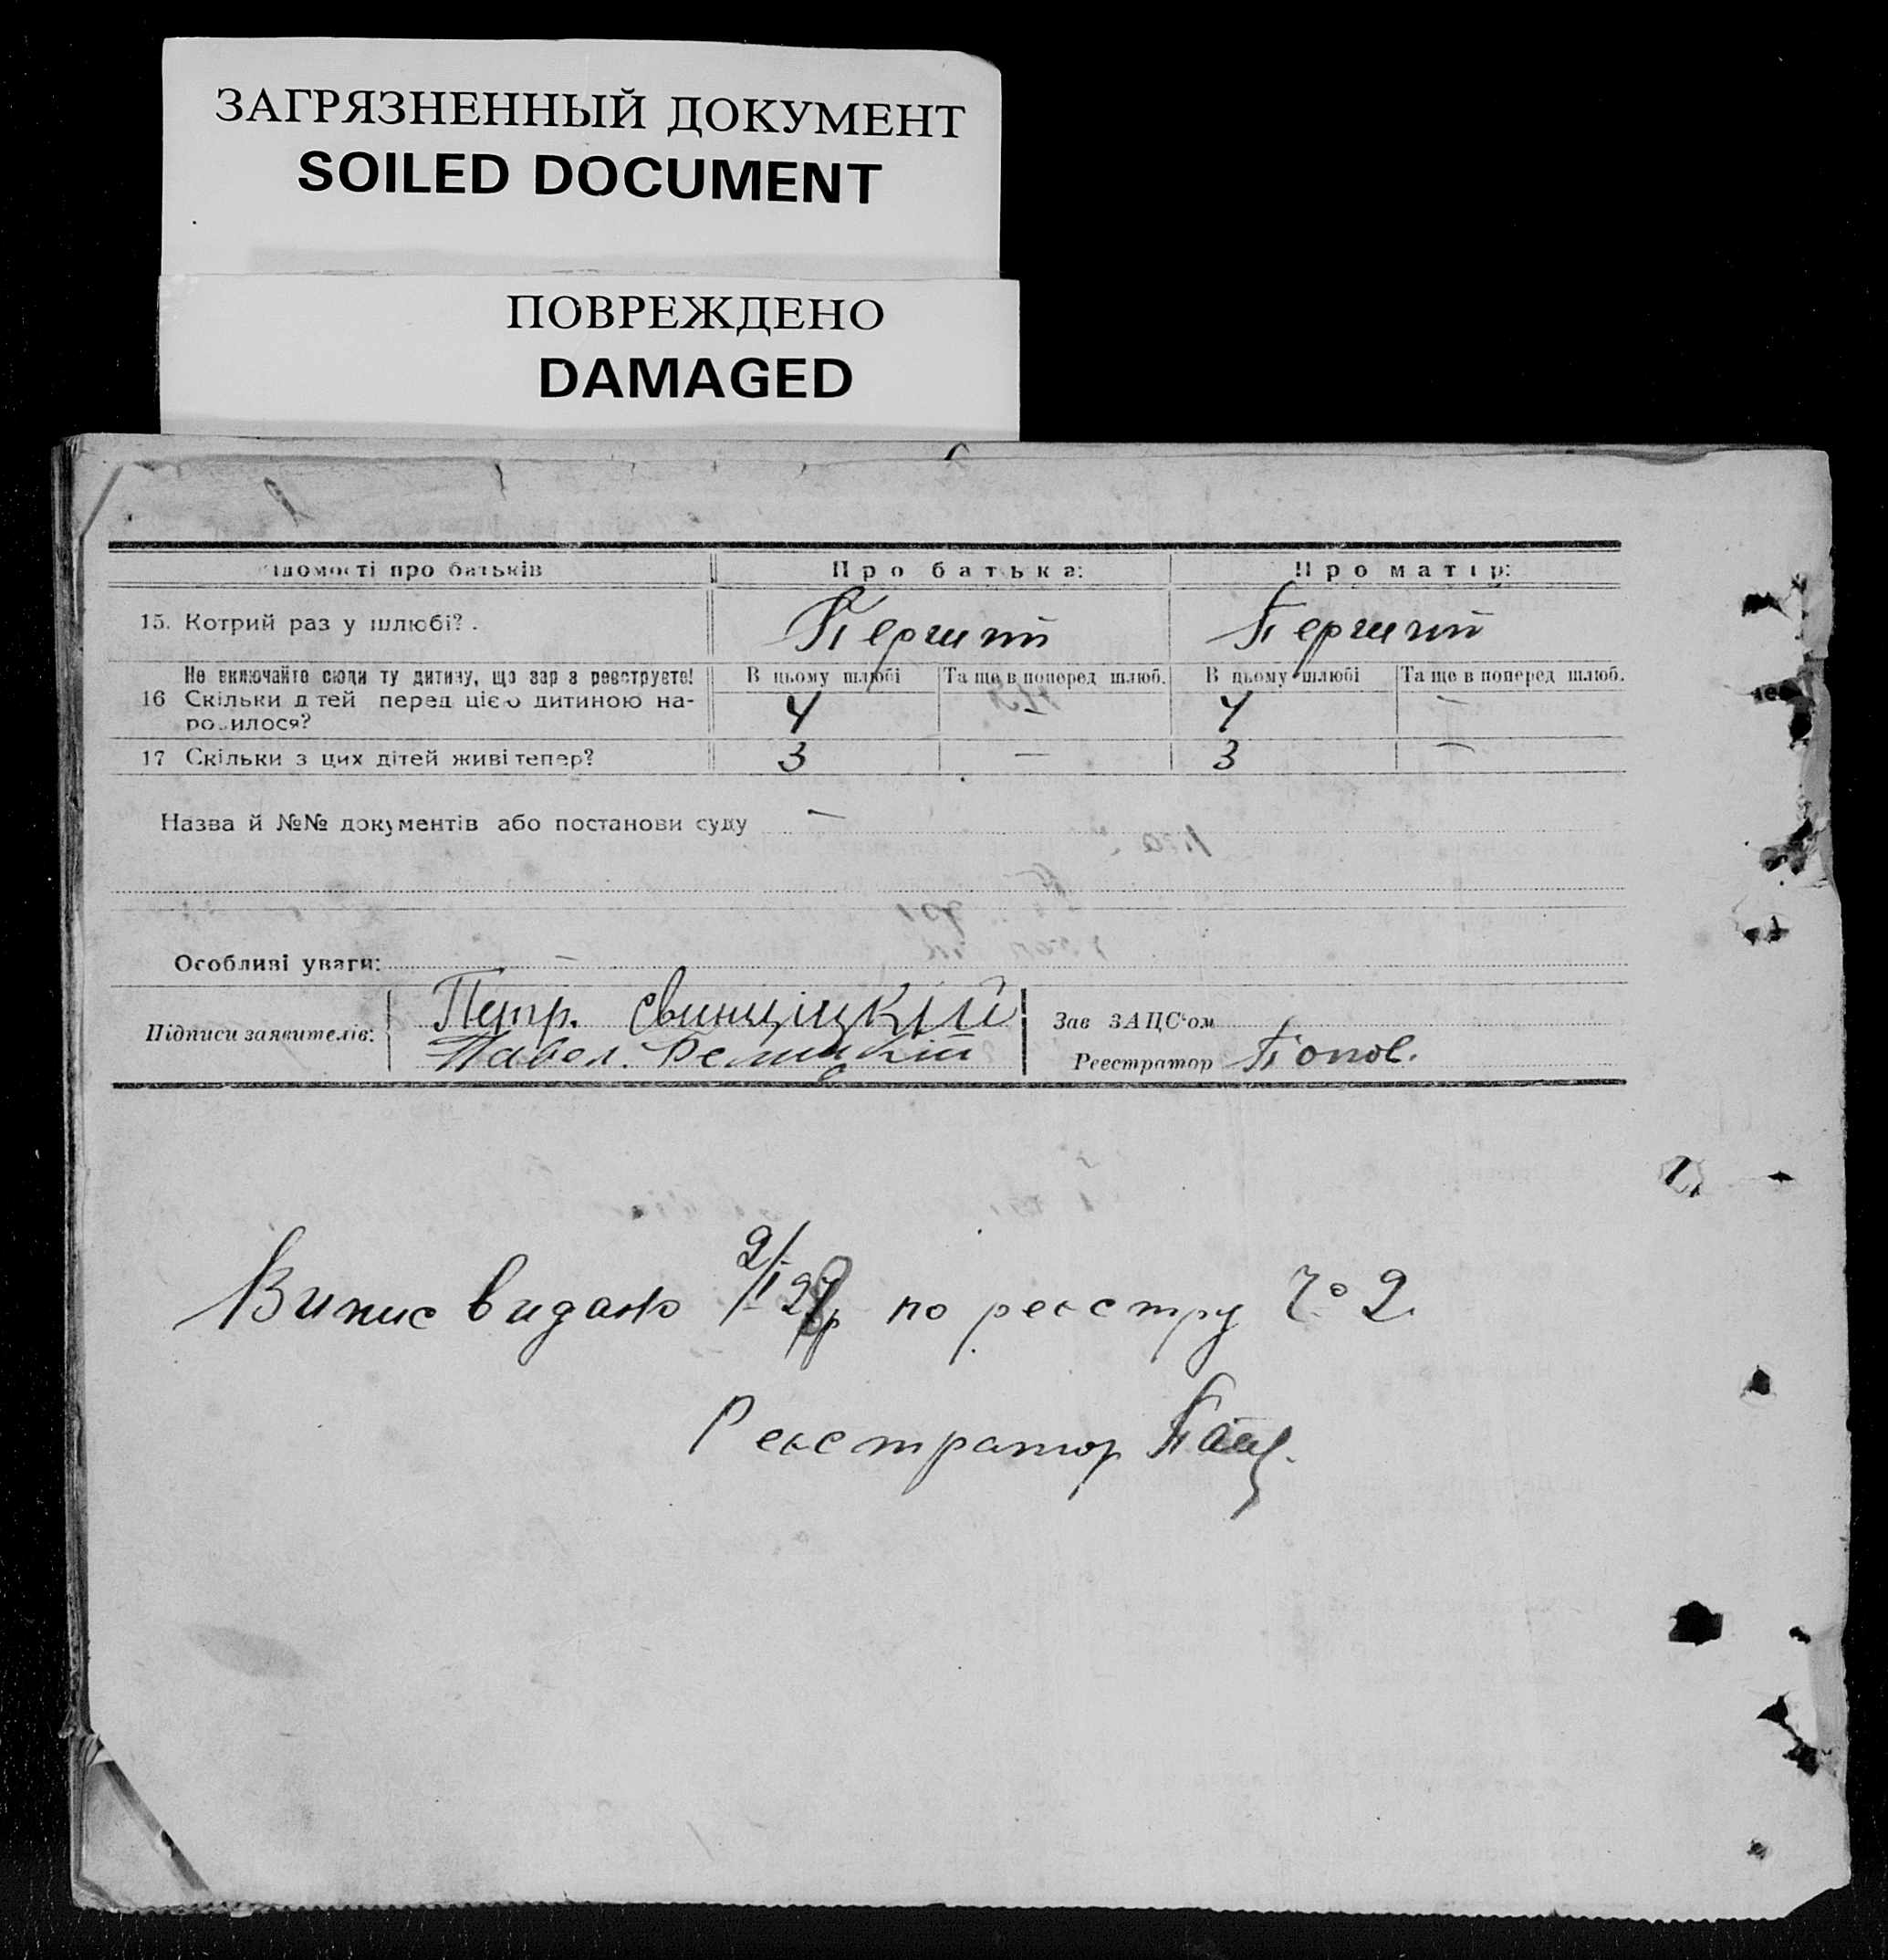 ЗАГРЯЗНЕННЫЙ ДОКУМЕНТ
SOILED DOCUMENT
ПОВРЕЖДЕНО
DAMAGED
ідомості про батьків Про батька: Про матір:
15. Котрий раз у шлюбі? . Перший Перший
Не включайте сюди ту дитину, що зар з реєструєте! В цьому шлюбі Та ще в поперед шлюб. В цьому шлюбі Та ще в поперед шлюб.
16 Скільки д тей перед цією дитиною на- 4 — 4 —
ро..илося?
17 Скільки з цих дітей живі тепер? 3 — 3 —
Назва й №№ документів або постанови суду —
Особливі уваги: —
Підписи заявителів: Петр. Свинціцкий Зав ЗАЦС‘ом
Павел. Реєстратор Попов.
Випис видано 2/I 28р по реєстру № 2.
Реєстратор